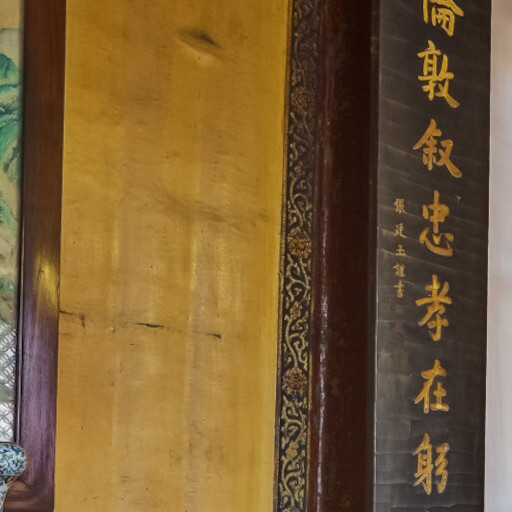 倫敦叙忠孝在躬
張廷玉謹書